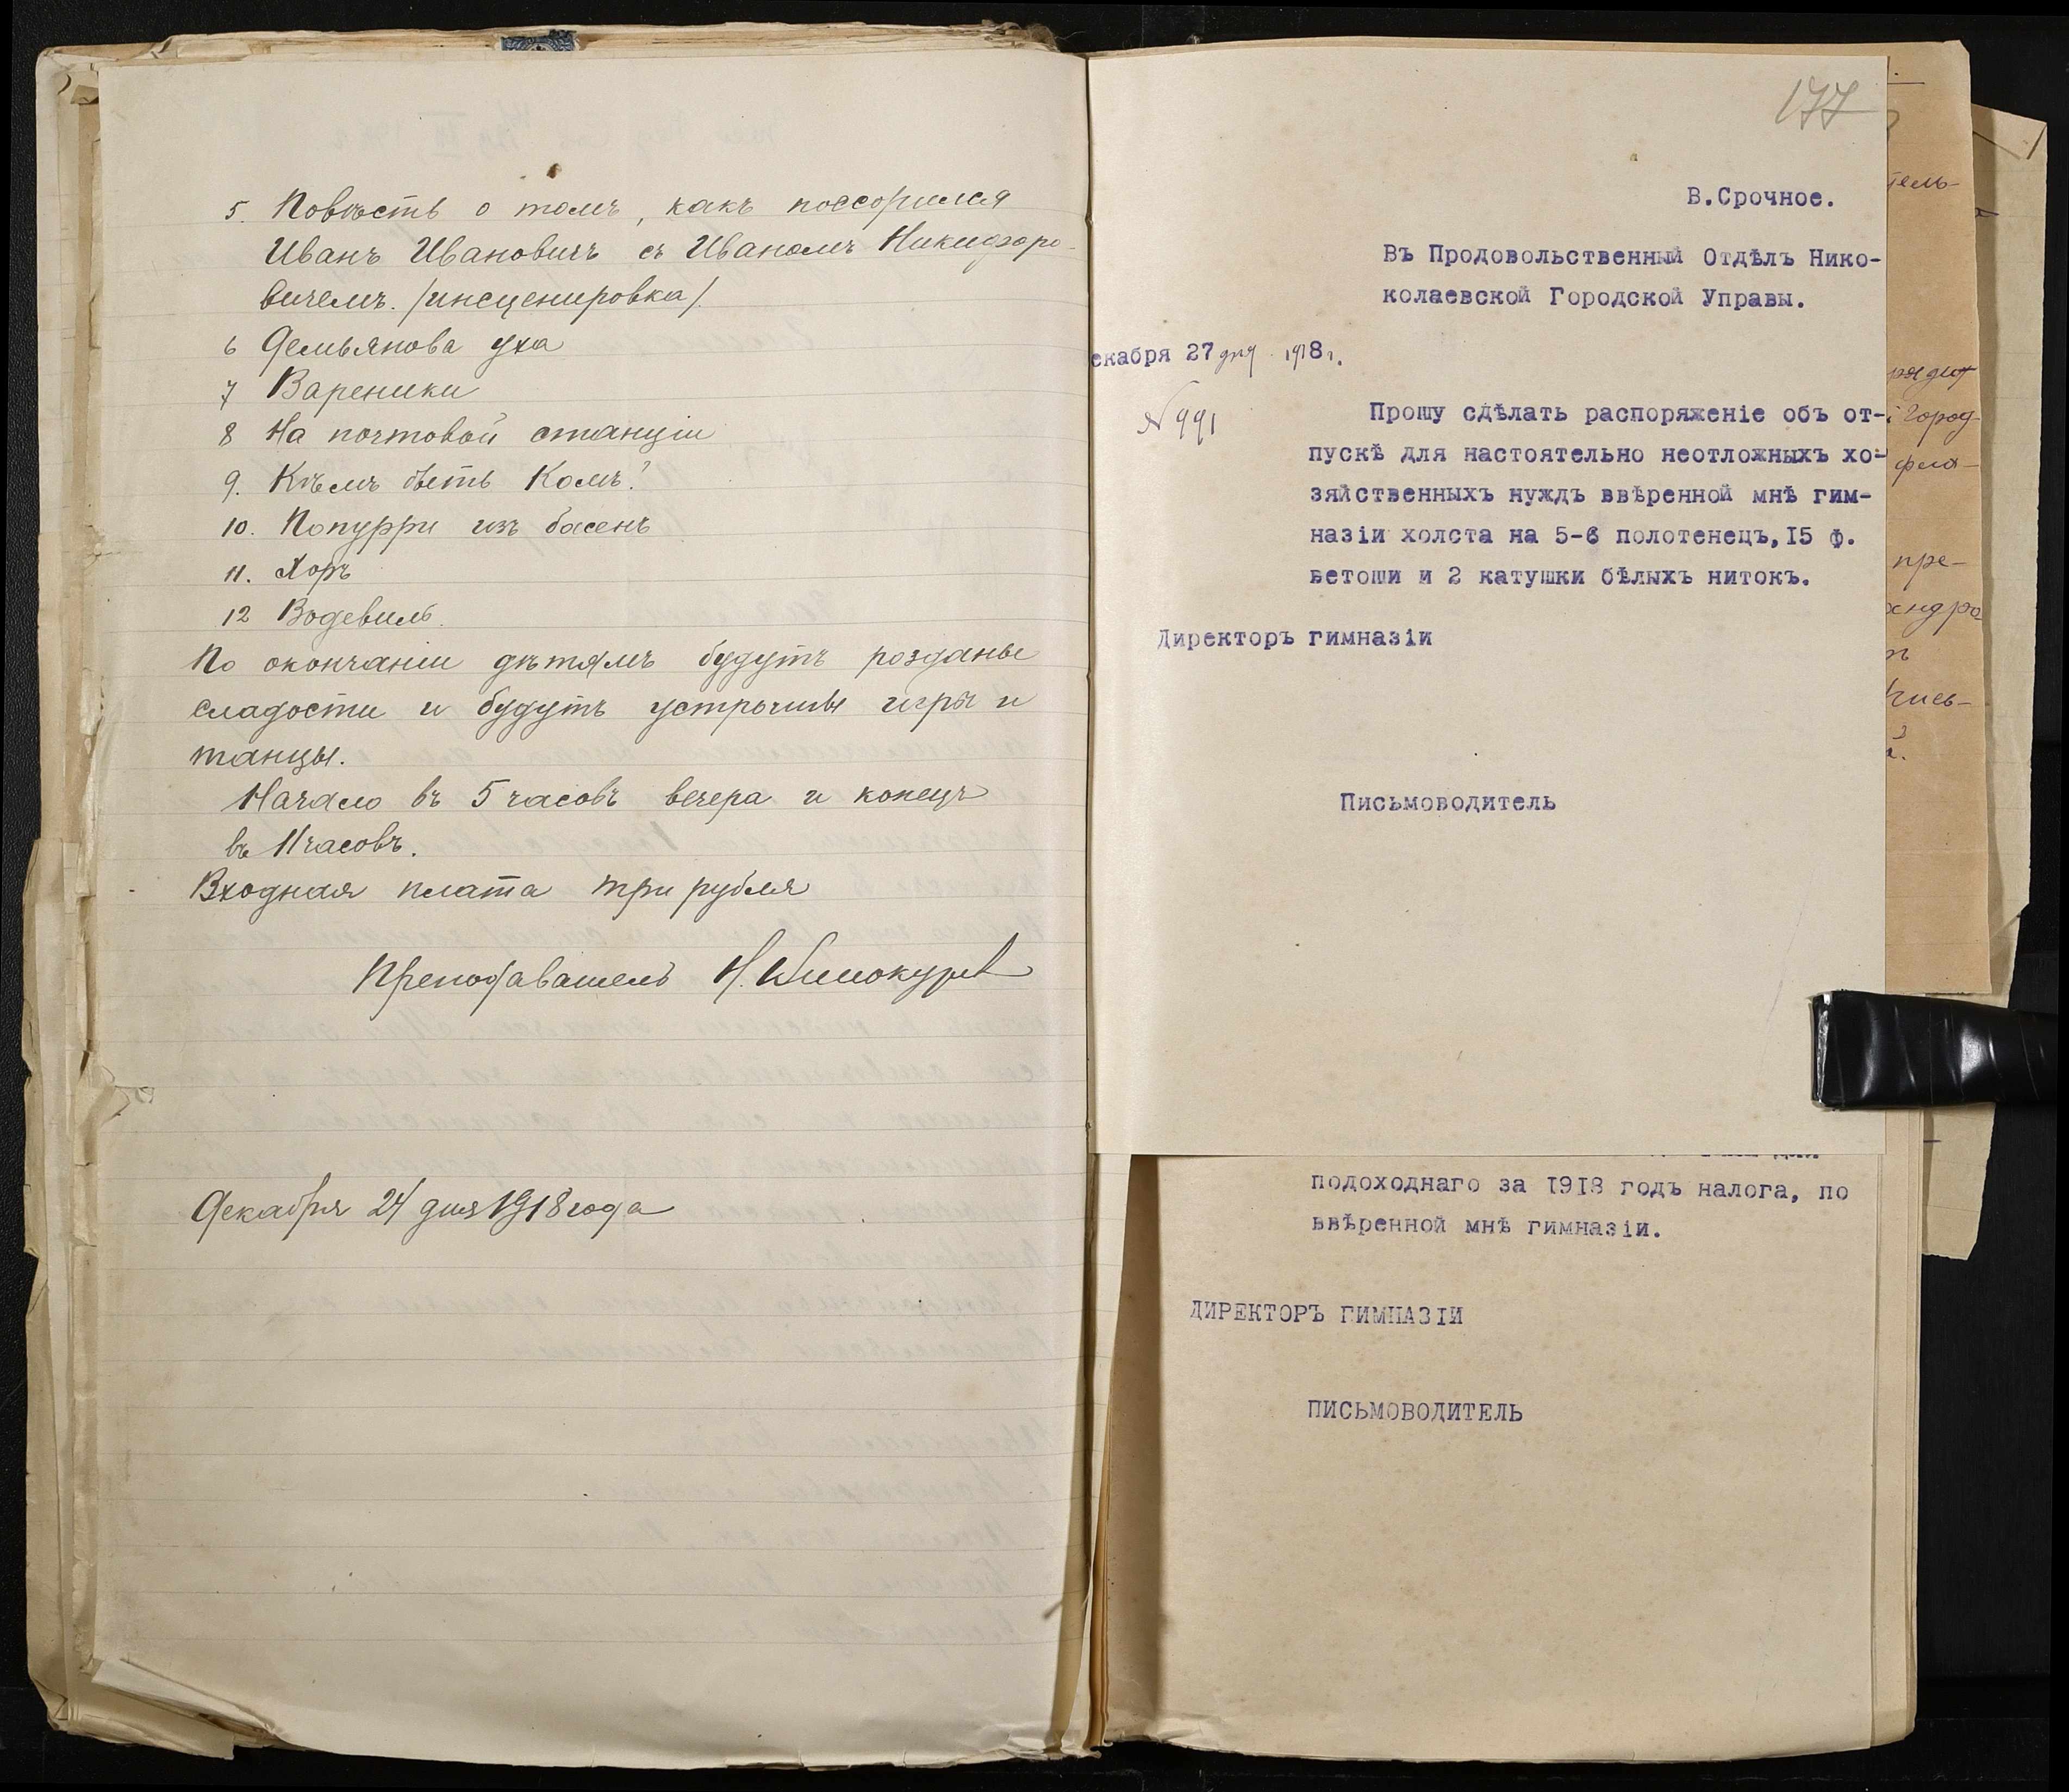 5. Повѣсть о томъ, какъ поссорился
Иванъ Ивановичъ съ Иваномъ Никифоро-
вичемъ. /инсценировка/.
6 Демьянова уха
7 Вареники
8 На почтовой станціи
9. Кѣмъ быть Комъ?
10. Попурри изъ басенъ
11. Хоръ
12 Водевиль.
По окончаніи дѣтямъ будутъ розданы
сладости и будутъ устроины игры и
танцы.
Начало въ 5 часовъ вечера и конецъ
въ 11 часовъ.
Входная плата три рубля
Преподаватель Н.
Декабря 24 дня 1918 года
177
В.Срочное.
Въ Продовольственный Отдѣлъ Нико-
колаевской Городской Управы.
екабря 27 дня 1918 г.
№ 991
Прошу сдѣлать распоряженіе объ от-
пускѣ для настоятельно неотложныхъ хо-
зяйственныхъ нуждъ ввѣренной мнѣ гим-
назіи холста на 5-6 полотенецъ, I5 ф.
ветоши и 2 катушки бѣлыхъ нитокъ.
Директоръ гимназіи
Письмоводитель
подоходнаго за I9I8 годъ налога, по
ввѣренной мнѣ гимназіи.
ДИРЕКТОРЪ ГИМНАЗІИ
ПИСЬМОВОДИТЕЛЬ
тель-
Город-
пре-